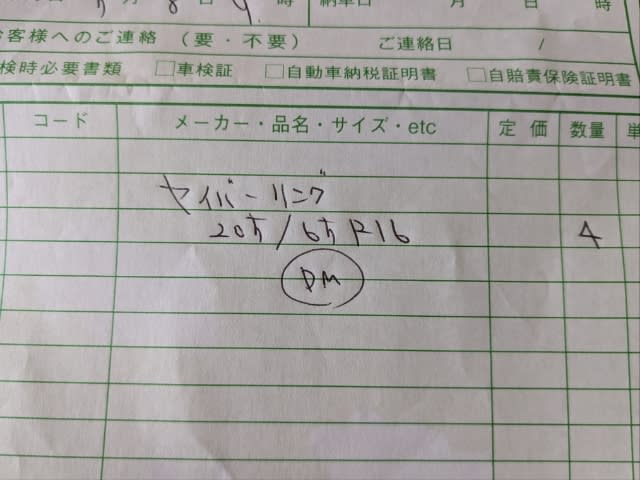 月 8日 9時 納車日 月 日 時
お客様へのご連絡 (要・不要) ご連絡日 /
検時必要書類 □車検証 □自動車納税証明書 □自賠責保険証明書
コード メーカー・品名・サイズ・etc 定価 数量 単
セイバーリング
205/65R16 4
DM